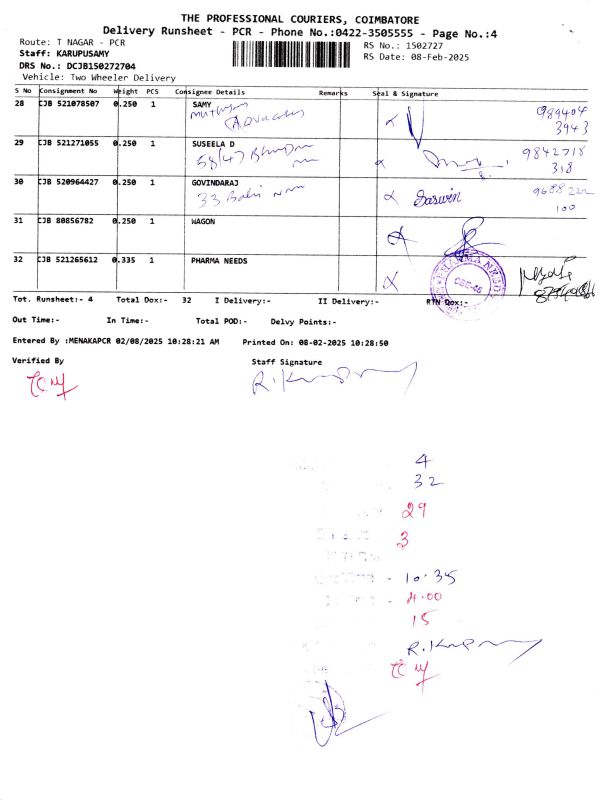 THE PROFESSIONAL COURIERS, COIMBATORE
Delivery Runsheet - PCR - Phone No.:0422-3505555 - Page No.:4
Route: T NAGAR - PCR
RS No.: 1502727
Staff: KARUPUSAMY
RS Date: 08-Feb-2025
DRS No.: DCJB150272704
Vehicle: Two Wheeler Delivery
S No Consignment No Weight PCS Consignee Details Remarks Seal & Signature
28 CJB 521078507 0.250 1 SAMY
989404
3943
29 CJB 521271055 0.250 1 SUSEELA D
9842718
318
58/47
30 CJB 520964427 0.250 1 GOVINDARAJ
33
9688222
100
31 CJB 80856782 0.250 1 WAGON
32 CJB 521265612 0.335 1 PHARMA NEEDS
PHARMA NEEDS
CBE-45
Tot. Runsheet:- 4 Total Dox:- 32 I Delivery:- II Delivery:- RTN Dox:-
Out Time:- In Time:- Total POD:- Delvy Points:-
Entered By :MENAKAPCR 02/08/2025 10:28:21 AM Printed On: 08-02-2025 10:28:50
Verified By Staff Signature
4
32
29
3
10.35
4.00
15